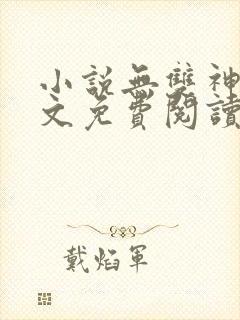 小說無雙神
文免費閱讀
戴焰軍